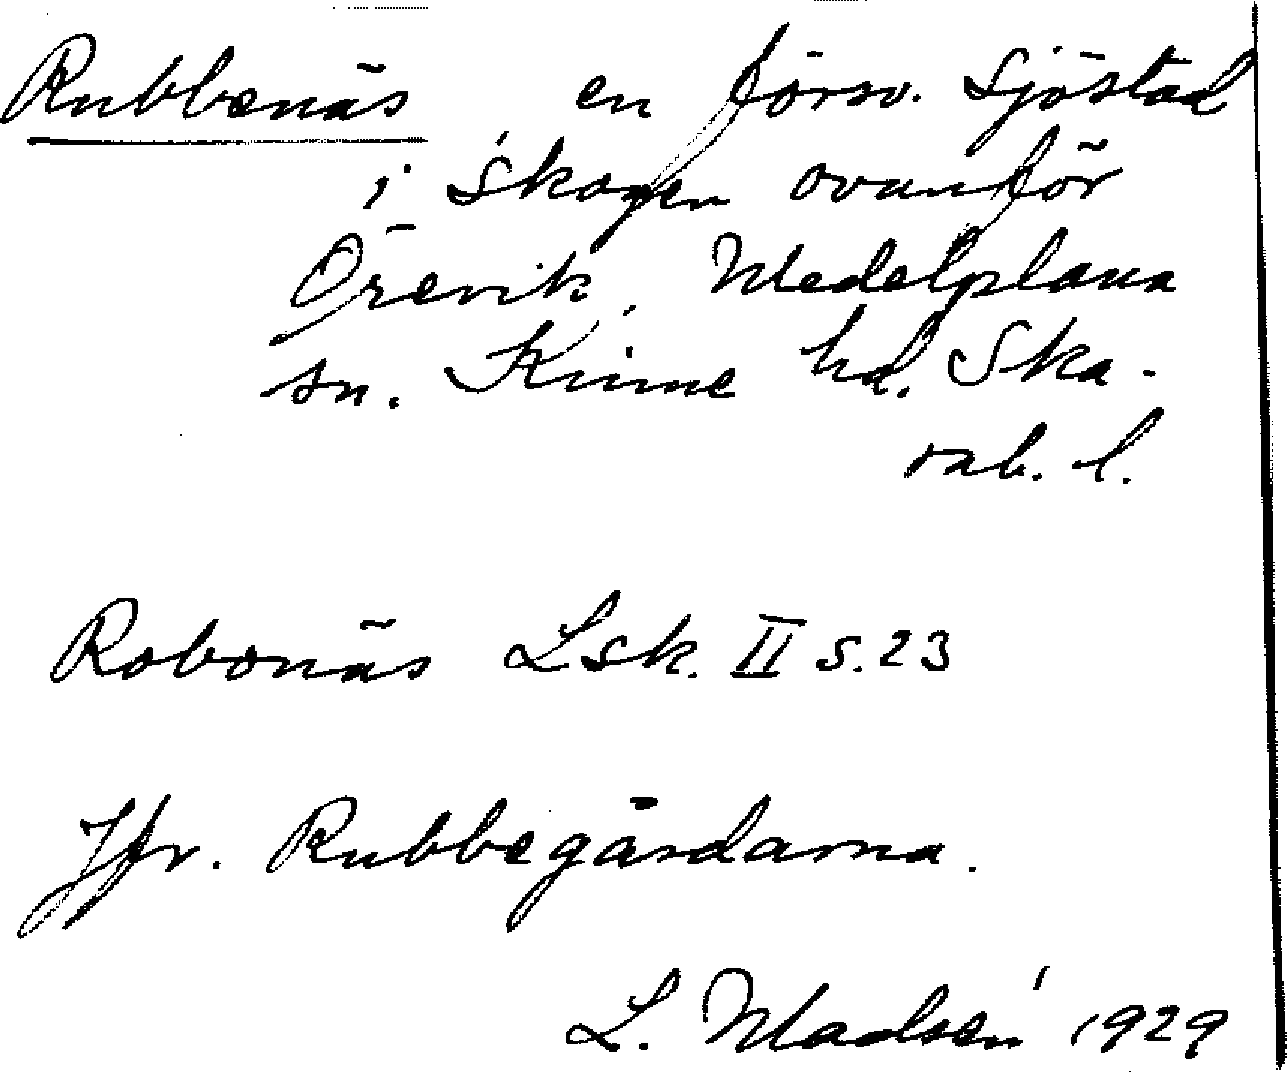 Rubbenäs en försv. Sjöstad
i Skogen ovanför
Örevik, Medelplana
sn. Kinne hd. Ska-
rab. l.
Robonäs Lsk. II s. 23
Jfr. Rubbegårdarna.
L. Madsén 1929